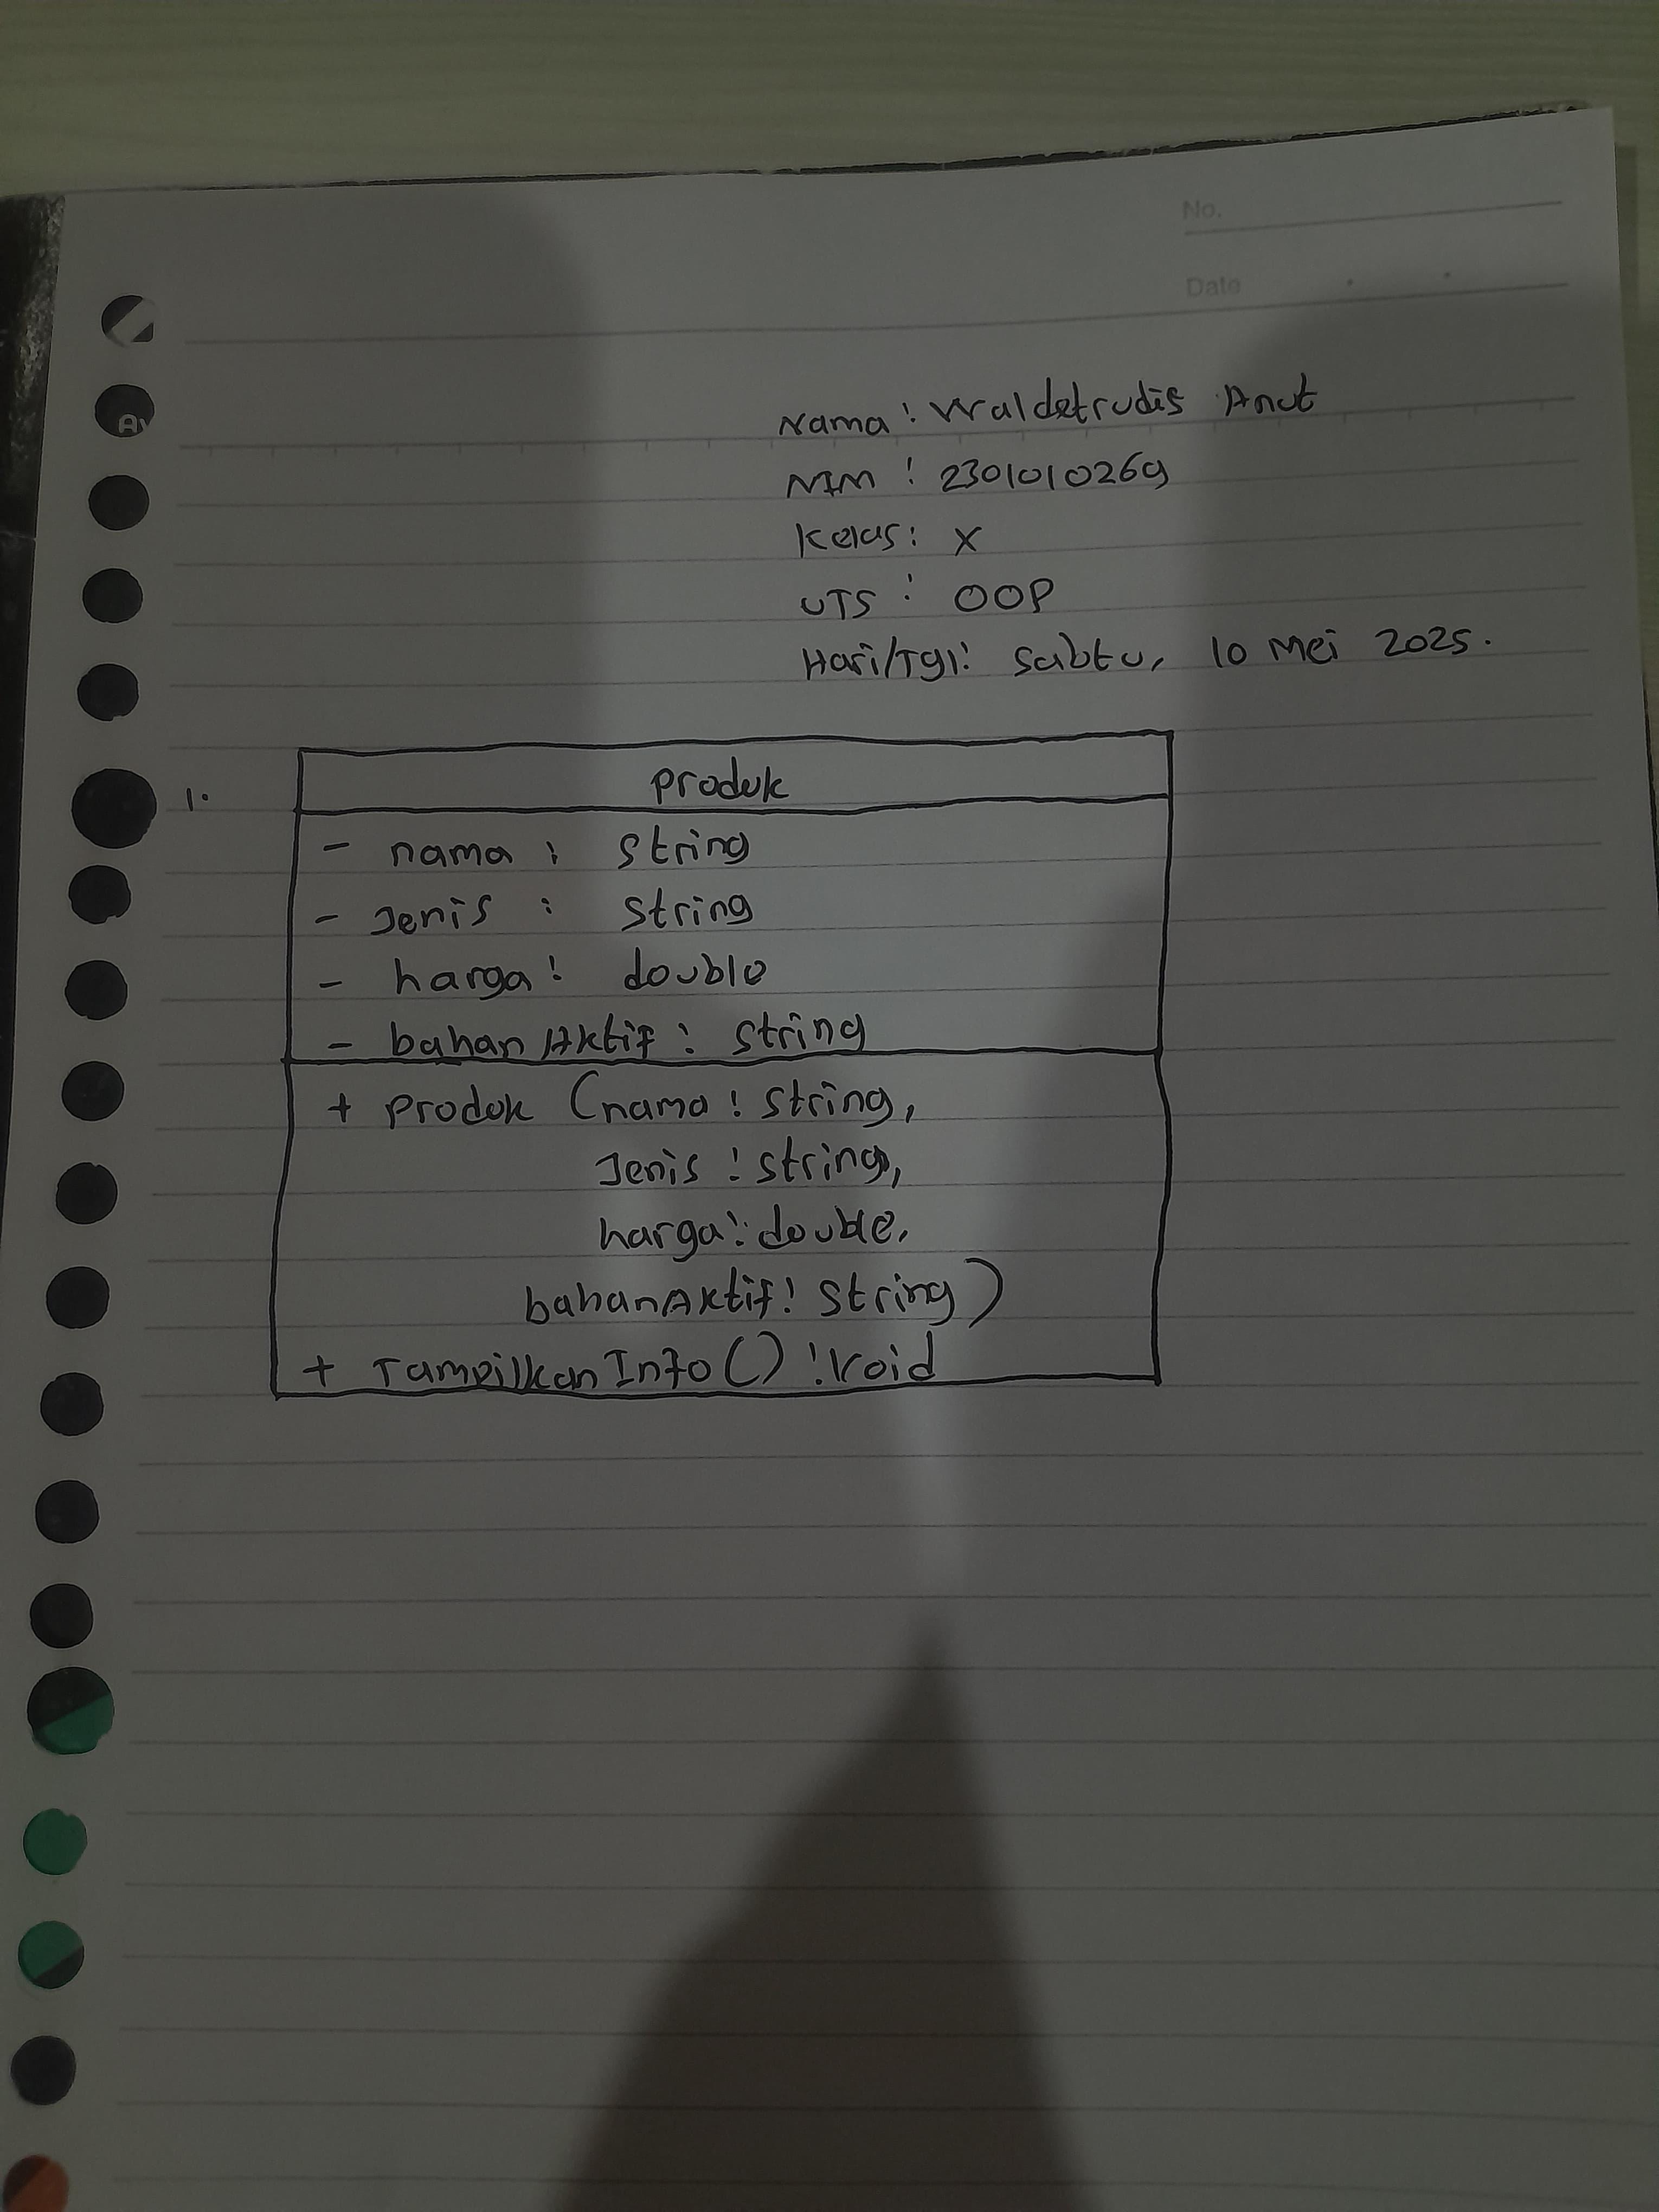 No.
Date
Nama : Waldetrudis Anut
NIM : 2301010269
Kelas : X
UTS : OOP
Hari/Tgl : Sabtu, 10 Mei 2025.
1.
Produk
- nama : String
- Jenis : String
- harga : double
- bahanAktif : String
+ Produk (nama : String,
Jenis : String,
harga : double,
bahanAktif : String)
+ TampilkanInfo() : Void